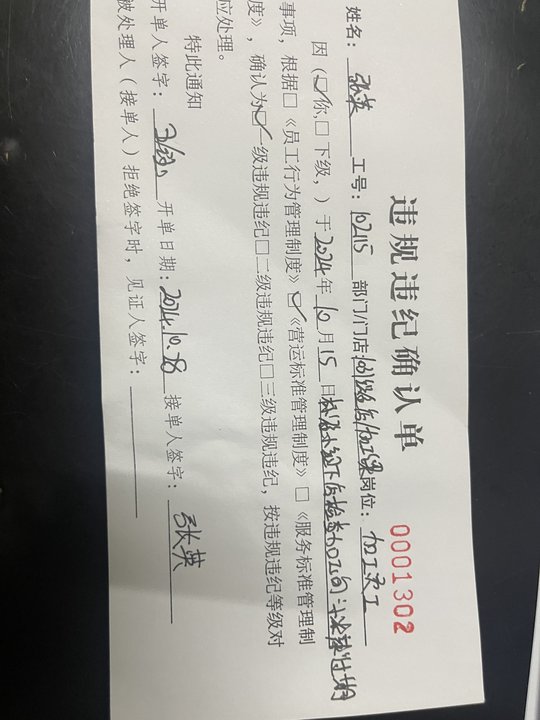 违规违纪确认单
0001302
姓名：张英 工号：102115 部门/门店 岗位：加工员工
因（☑你，□下级，）于2024年10月15日 检查加工间
事项，根据□《员工行为管理制度》☑《营运标准管理制度》□《服务标准管理制
度》，确认为☑一级违规违纪□二级违规违纪□三级违规违纪，按违规违纪等级对
应处理。
特此通知
开单人签字： 开单日期：2024.10.28 接单人签字：张英
被处理人（接单人）拒绝签字时，见证人签字：